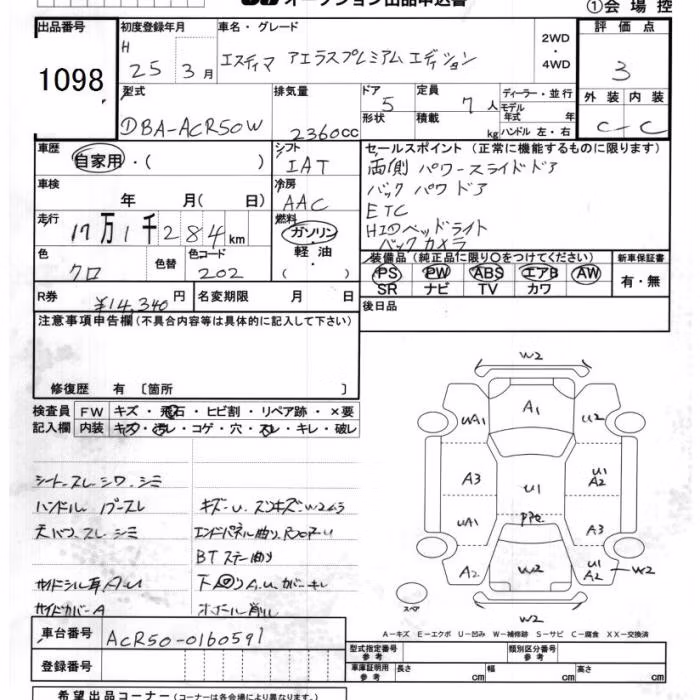 オークション出品申込書
①会場控
出品番号 初度登録年月 車名・グレード 評価点
1098 H 25 3月 エスティマ アエラスプレミアム エディション 2WD・4WD 3
型式 排気量 ドア 5 定員 7人 ディーラー・並行 外装 内装
DBA-ACR50W 2360cc 形状 積載 kg モデル年式 年 ハンドル 左・右 C-C
車歴 自家用・( ) シフト IAT セールスポイント (正常に機能するものに限ります)
車検 年 月( 日) 冷房 AAC 両側 パワースライドドア
バック パワ ドア
ETC
走行 17万1千284km 燃料 ガソリン・軽油・( ) HIDヘッドライト
バックカメラ
色 クロ 色替 色コード 202 装備品(純正品に限り○をつけてください) 新車保証書
PS PW ABS エアB AW 有・無
SR ナビ TV カワ
R券 ¥14,340円 名変期限 月 日 後日品
注意事項申告欄(不具合内容等は具体的に記入して下さい)
修復歴 有〔箇所 〕
検査員 FW キズ・飛石・ヒビ割・リペア跡・×要
記入欄 内装 キズ・汚レ・コゲ・穴・スレ・キレ・破レ
シートスレ シワ シミ
ハンドル スレ キズ・U
天バリ スレ シミ エンドパネル曲り
BTステー曲り
サイドシル耳 A・U 下 A.U カバーキレ
サイドカバーA
W2
A1
UA1 U2
A3 U1 U1 A2
UA1 A3
A2 W2 U1 A2 W2
スペア W2
A-キズ E-エクボ U-凹み W-補修跡 S-サビ C-腐食 XX-交換済
車台番号 ACR50-0160591
登録番号
型式指定番号 参考 類別区分番号 参考
車庫証明用 参考 長さ cm 幅 cm 高さ cm
希望出品コーナー(コーナーは各会場により異なります。)